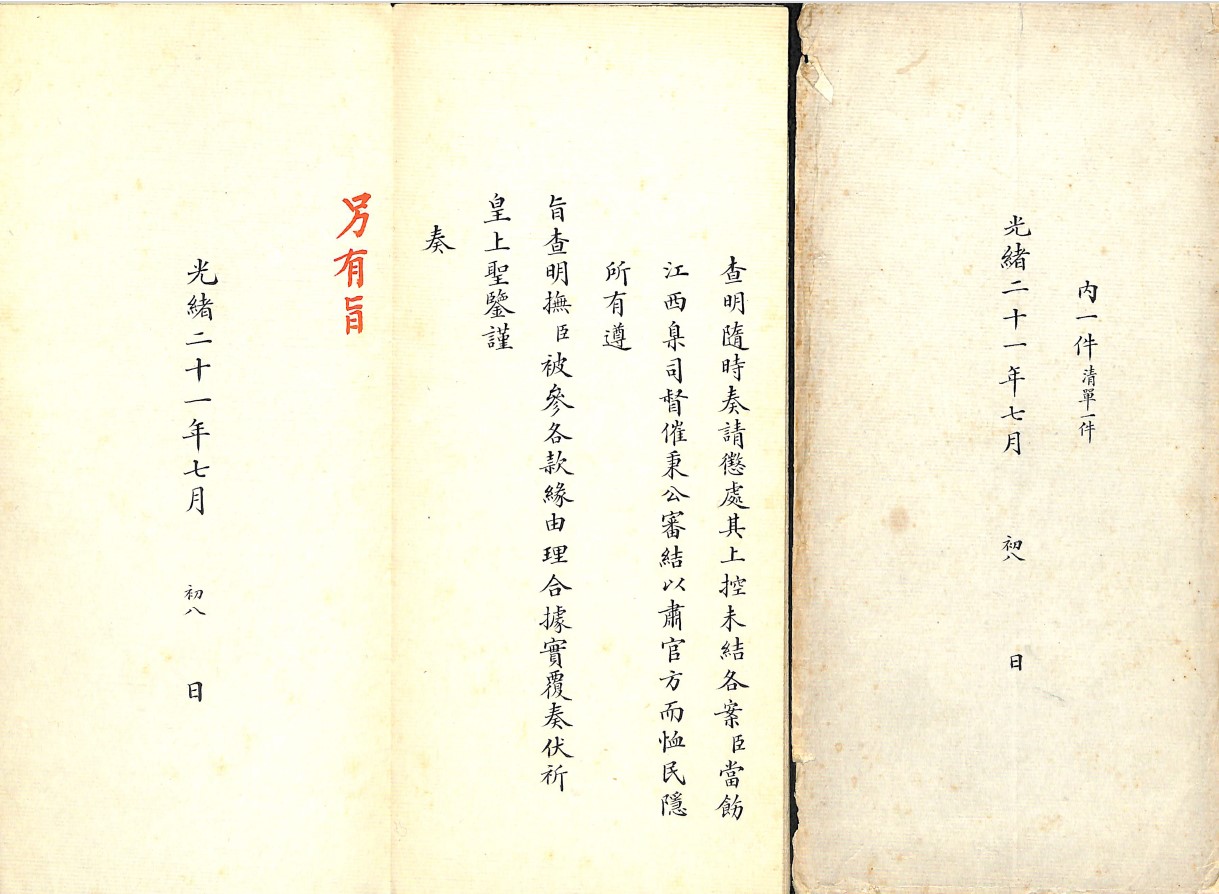 內一件清單一件
光緒二十一年七月 初八 日
查明隨時奏請懲處其上控未結各案臣當飭
江西臬司督催秉公審結以肅官方而恤民隱
所有遵
旨查明撫臣被參各款緣由理合據實覆奏伏祈
皇上聖鑒謹
奏
另有旨
光緒二十一年七月 初八 日